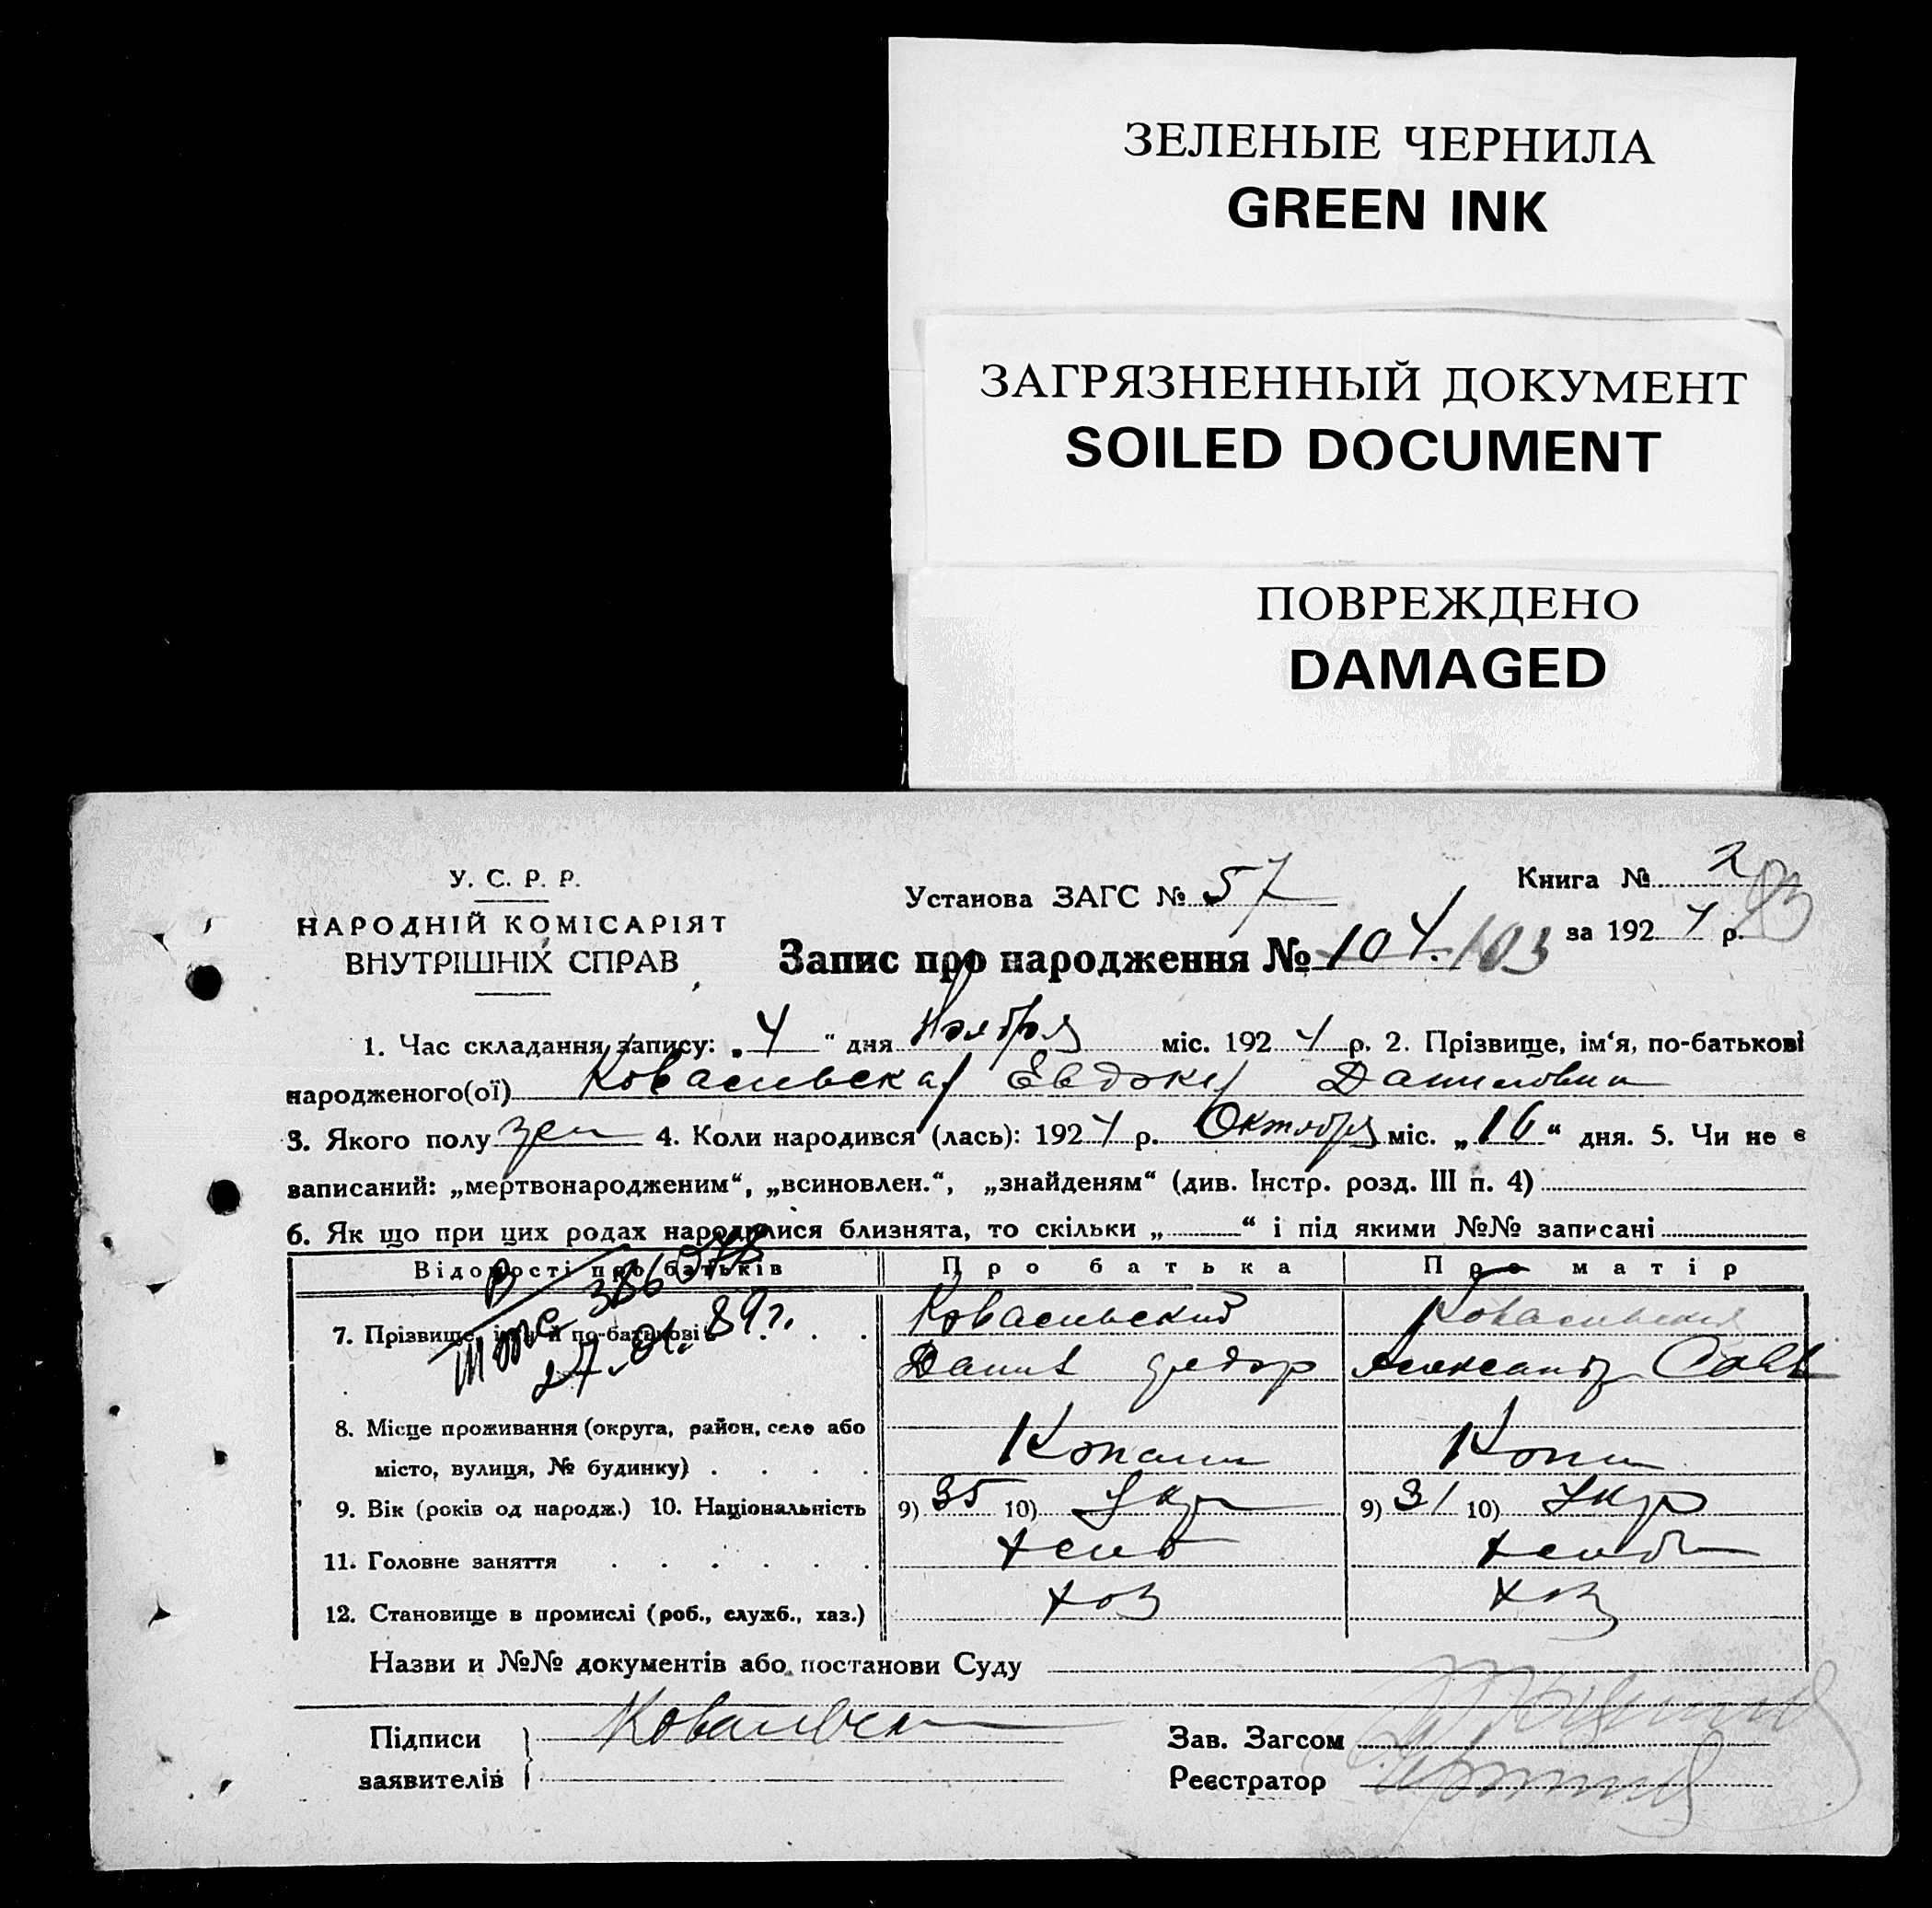 ЗЕЛЕНЫЕ ЧЕРНИЛА
GREEN INK
ЗАГРЯЗНЕННЫЙ ДОКУМЕНТ
SOILED DOCUMENT
ПОВРЕЖДЕНО
DAMAGED
У. С. Р. Р.
НАРОДНІЙ КОМІСАРІЯТ
ВНУТРІШНІХ СПРАВ
Установа ЗАГС № 57
Книга № 2
за 1924 р.
Запис про народження № 104. 103
1. Час складання запису: „4“ дня Ноября міс. 1924 р. 2. Прізвище, ім‘я, по-батькові
народженого(ої) Ковалевска Евдоки Даниловна
3. Якого полу жен 4. Коли народився (лась): 1924 р. Октября міс. „16“ дня. 5. Чи не є
записаний: „мертвонародженим“, „всиновлен.“, „знайденям“ (див. Інстр. розд. III п. 4)
6. Як що при цих родах народилися близнята, то скільки „ “ і під якими №№ записані
Відомості про батьків Про батька Про матір
7. Прізвище, ім‘я й по-батькові Ковалевский Ковалевская
27.01.89г. Данил Федор Александр Савв
8. Місце проживання (округа, район, село або
місто, вулиця, № будинку) Копани Копан
9. Вік (років од народж.) 10. Національність 9) 35 10) Укр 9) 31 10) Укр
11. Головне заняття хлеб хлеб
12. Становище в промислі (роб., служб., хаз.) хоз хоз
Назви и №№ документів або постанови Суду
Підписи Ковалевск Зав. Загсом
заявителів Реєстратор